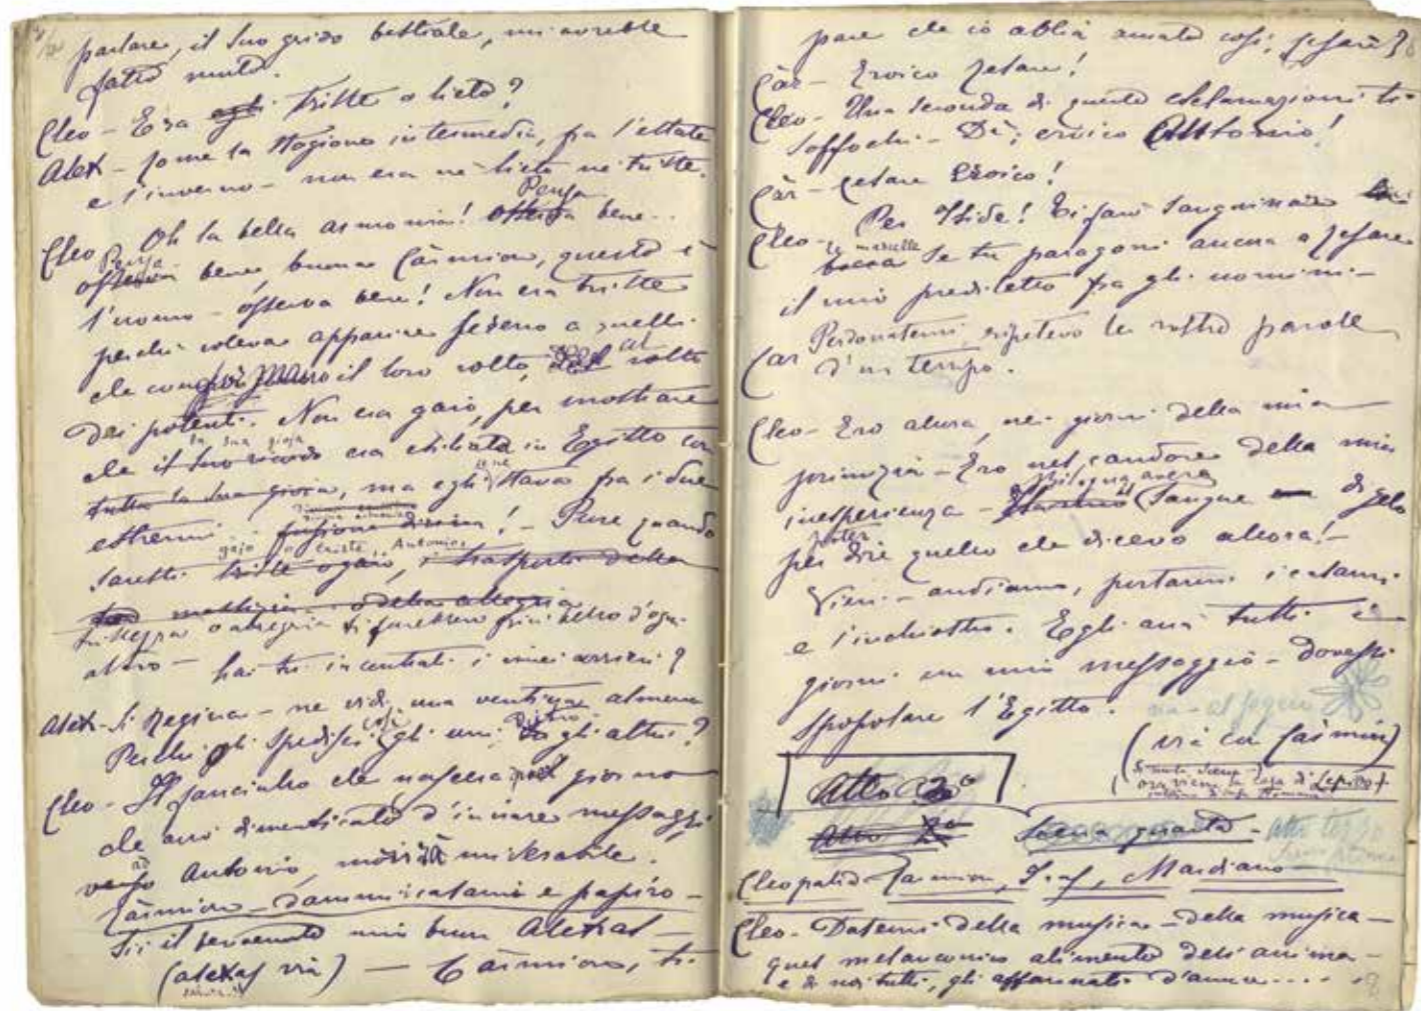 parlare, il suo grido bestiale, mi avrebbe
fatto muto.
Cleo - Era egli triste o lieto?
Alex - Come la stagione intermedia, fra l'estate
e l'inverno - non era nè lieto nè triste.
Cleo Oh la bella armonia! Pensa osserva bene..
Pensa osserva bene, buona Càrmion, questo è
l'uomo - osserva bene! Non era triste
perchè voleva apparire sereno a quelli
che il loro volto, al volto
dei potenti. Non era gaio, per mostrare
la sua gioja
che il suo ricordo era in Egitto con
tutta la sua gioia, ma egli se ne stava fra i due
estremi - fusione divina! - Pure quando
gajo o triste, Antonio
saresti triste o gaio, i trasporti della
mestizia o della allegria
tristezza o allegria ti farebbero più bello d'ogni
altro - hai tu incontrati i miei corrieri?
Alex - Si Regina - ne vidi una ventina almeno
Perchè gli spedisci così gli uni dietro gli altri?
Cleo - Il fanciullo che nascerà nel giorno
che avrò dimenticato d'inviare messaggi
verso ad Antonio, morirà miserabile.
Càrmion - dammi calami e papiro -
Sii il benvenuto mio buon Alexas -
(alexas via) - Càrmion, ti
pare che io abbia amato così, Cesare?
Càr - Eroico Cesare!
Cleo - Una seconda di queste esclamazioni ti
soffochi - Dì; eroico Antonio!
Càr - Cesare Eroico!
Cleo - Per Iside! Ti farò sanguinare
le mascelle
bocca se tu paragoni ancora a Cesare
il mio prediletto fra gli uomini -
Car Perdonatemi, ripetevo le vostre parole
d'un tempo.
Cleo - Ero allora, nei giorni della mia
primizia - Ero nel candore della mia
bisogna avere
inesperienza - sangue di gelo
poter
per dire quello che dicevo allora! -
Vieni - andiamo, portami i calami
e l'inchiostro. Egli avrà tutti i
giorni un mio messaggio - dovessi
spopolare l'Egitto.
(via con Càrmion)
Atto 3º
Atto 2º Scena quarta - Atto terzo
Cleopatra Càrmion, Iras, Mardiano
Cleo - Datemi della musica - della musica -
quel melanconico alimento dell'anima -
e di noi tutti, gli affannati d'amore....
8